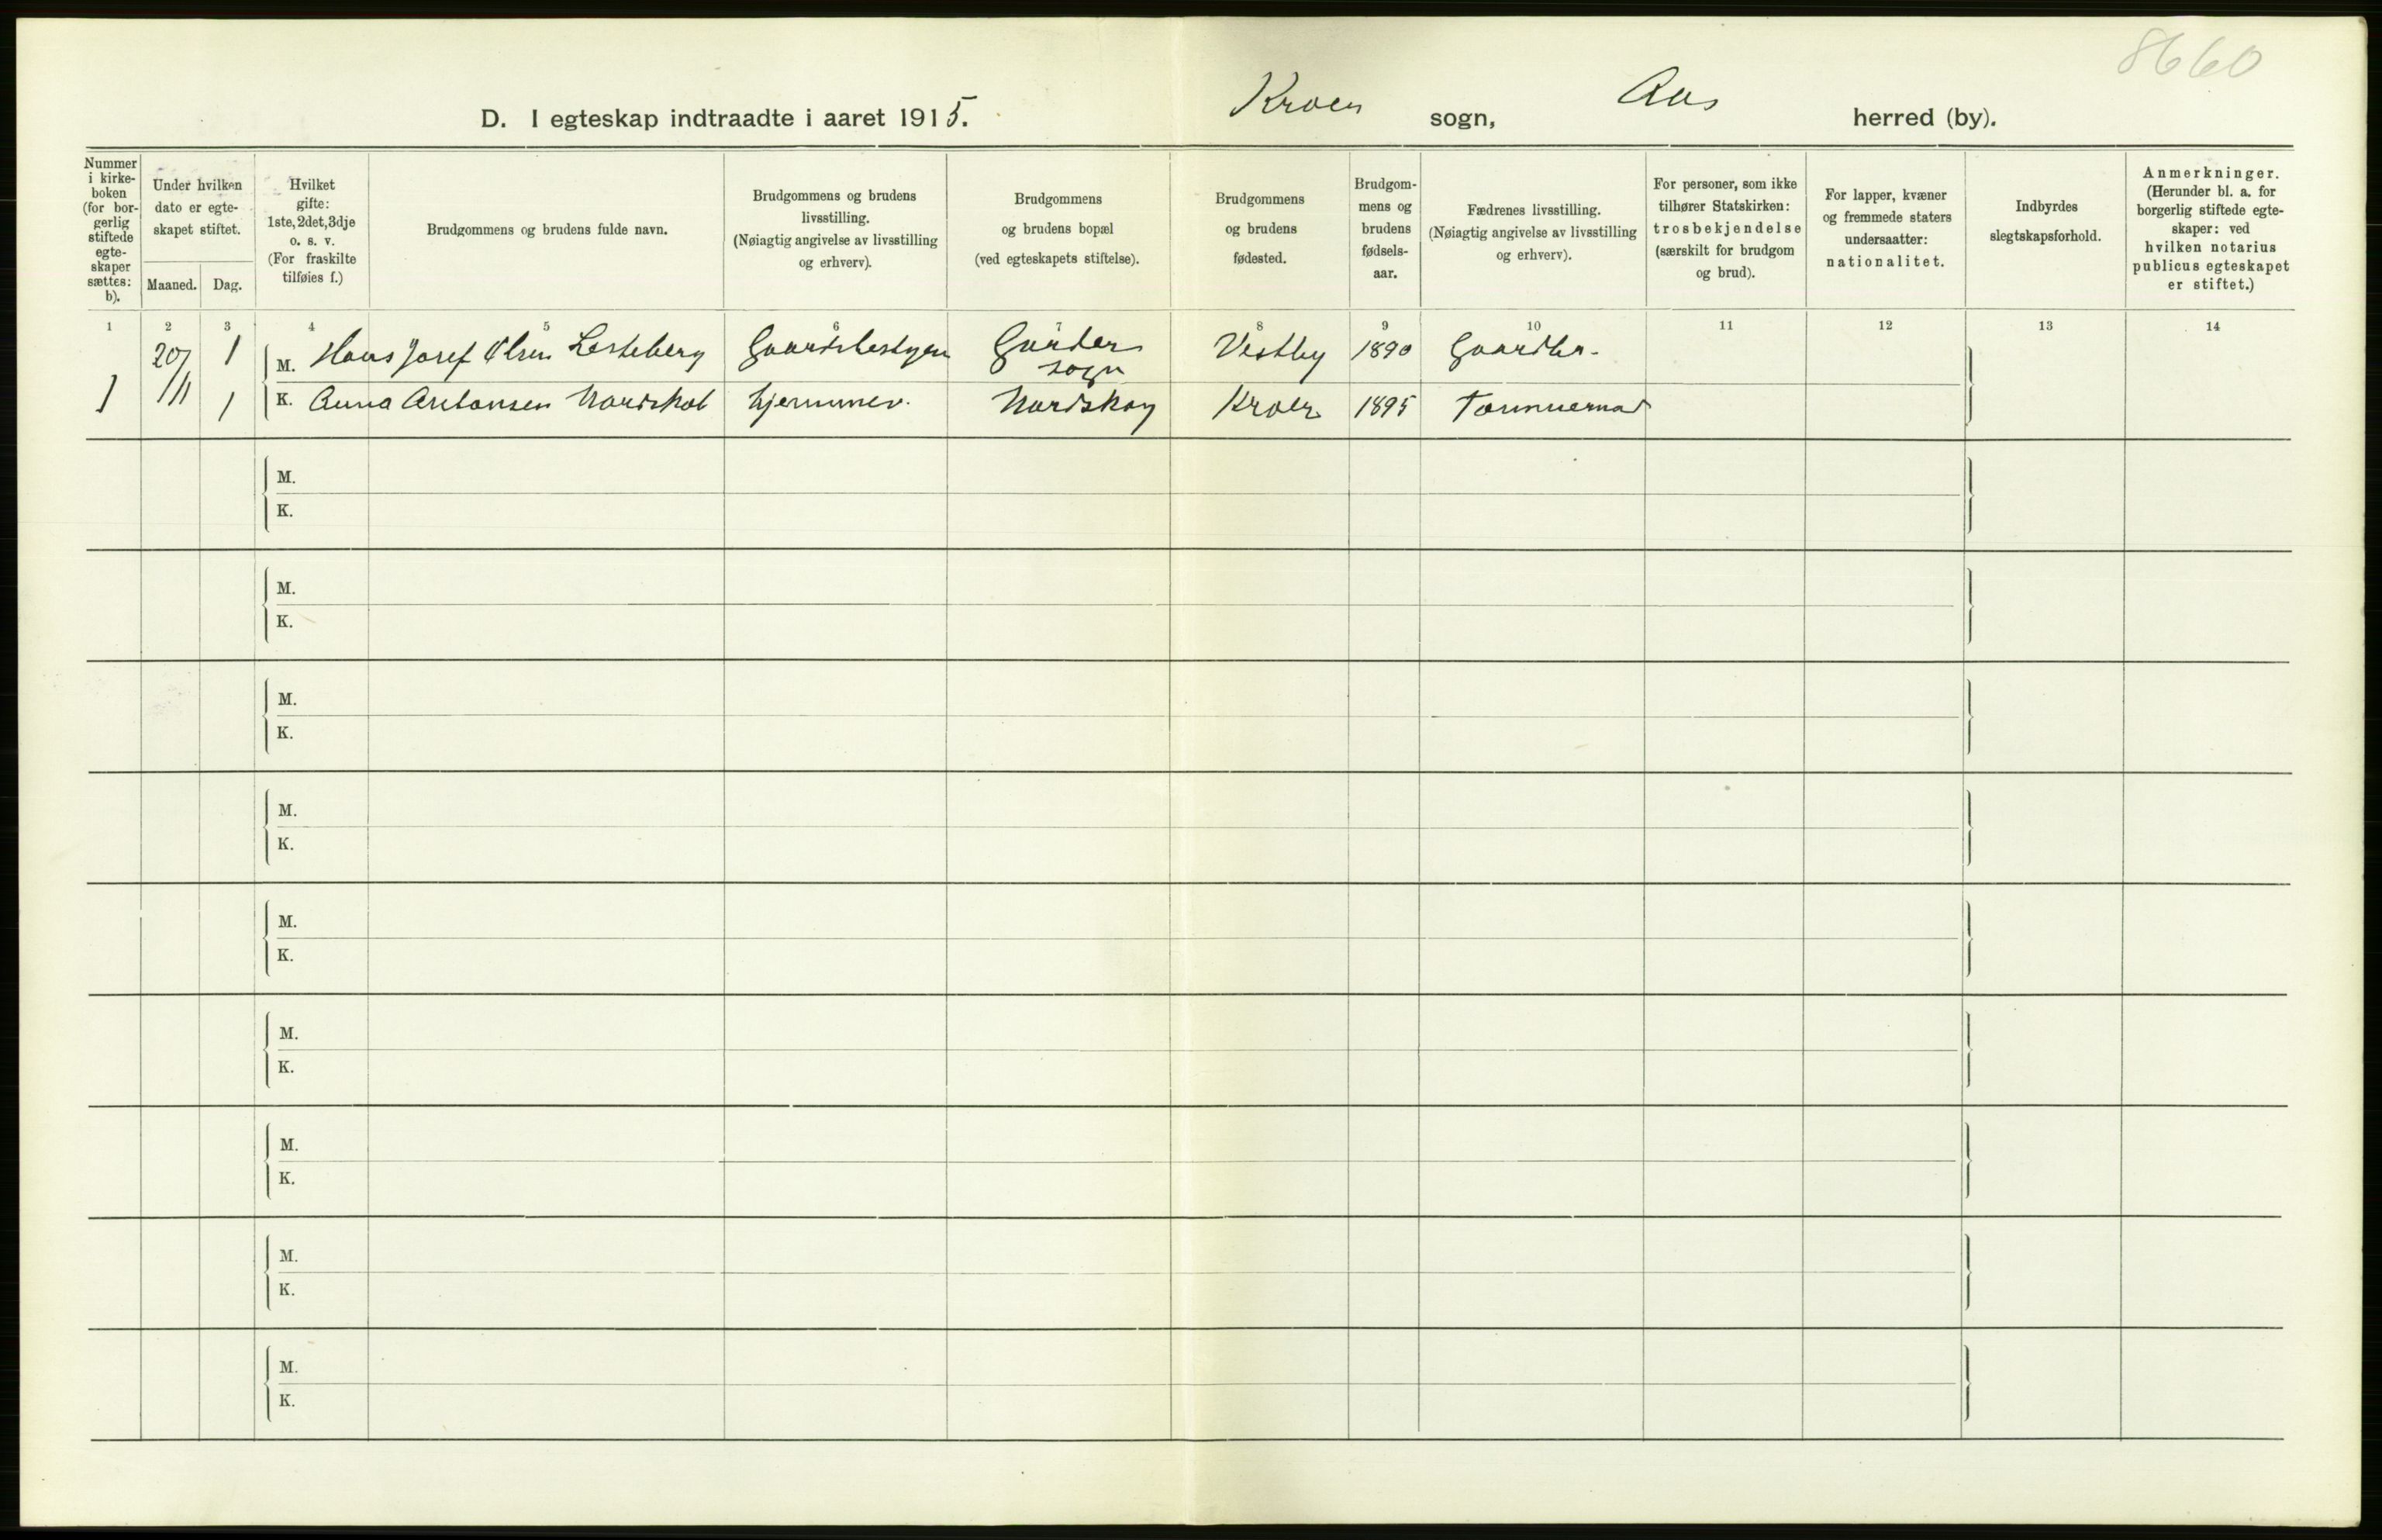 8660
D. I egteskap indtraadte i aaret 1915. Kroer sogn, Aas herred (by).
Nummer i kirke- boken (for bor- gerlig stiftede egte- skaper sættes: b).
Under hvilken dato er egte- skapet stiftet.
Maaned. Dag.
Hvilket gifte: 1ste, 2det, 3dje o. s. v. (For fraskilte tilføies f.)
Brudgommens og brudens fulde navn.
Brudgommens og brudens livsstilling. (Nøiagtig angivelse av livsstilling og erhverv).
Brudgommens og brudens bopæl (ved egteskapets stiftelse).
Brudgommens og brudens fødested.
Brudgom- mens og brudens fødsels- aar.
Fædrenes livsstilling. (Nøiagtig angivelse av livsstilling og erhverv).
For personer, som ikke tilhører Statskirken: trosbekjendelse (særskilt for brudgom og brud).
For lapper, kvæner og fremmede staters undersaatter: nationalitet.
Indbyrdes slegtskapsforhold.
Anmerkninger. (Herunder bl. a. for borgerlig stiftede egte- skaper: ved hvilken notarius publicus egteskapet er stiftet.)
1 2 3 4 5 6 7 8 9 10 11 12 13 14
20/ 1 M. Hans Josef Olsen Gaardsbestyrer Garder sogn Vestby 1890 Gaardbr.
1 /11 1 K. Anna Hjemmev. Nordskog Kroer 1895 Tømmermand
M.
K.
M.
K.
M.
K.
M.
K.
M.
K.
M.
K.
M.
K.
M.
K.
M.
K.